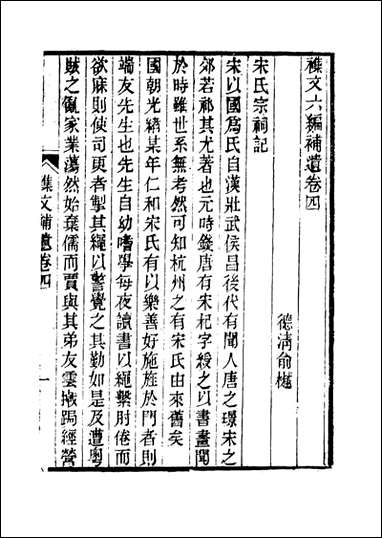 襍文六編補遺卷四
德淸俞樾
宋氏宗祠記
宋以國爲氏自漢壯武侯昌後代有聞人唐之璟宋之
郊若祁其尤著也元時錢唐有宋杞字授之以書畫聞
於時雖世系無考然可知杭州之有宋氏由來舊矣
國朝光緒某年仁和宋氏有以樂善好施旌於門者則
端友先生也先生自幼嗜學每夜讀書以繩繫肘倦而
欲麻則使司更者掣其繩以警覺之其勤如是及遭粤
賊之亂家業蕩然始棄儒而賈與其弟友雲拮据經營
襍文補遺卷四
一